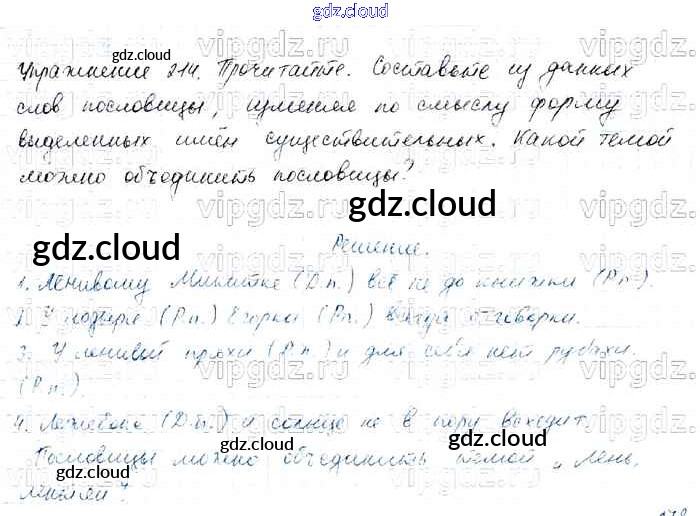 gdz.cloud
gdz.cloud
Упражнение 214. Прочитайте. Составьте из данных
слов пословицы, изменяя по смыслу форму
выделенных имён существительных. Какой темой
можно объединить пословицы?
gdz.cloud
gdz.cloud
Решение.
1. Ленивому Микитке (Д.п.) всё не до книжки (Р.п.).
2. У (Р.п.) Егорки (Р.п.) всегда отговорки.
3. У ленивой пряхи (Р.п.) и для себя нет рубахи.
(Р.п.).
4. Лежебоке (Д.п.) и солнце не в пору восходит.
gdz.cloud
gdz.cloud
Пословицы можно объединить темой „Лень,
gdz.cloud
gdz.cloud
vipgdz.ru